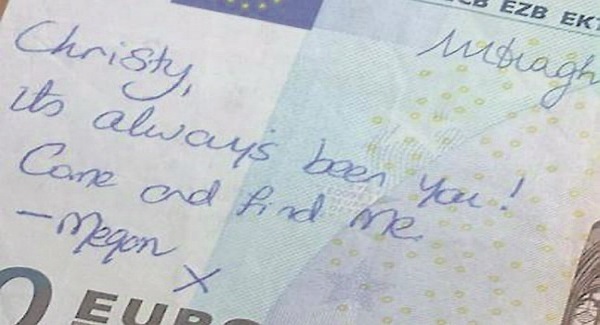 ECB EZB EKT
Christy,
its always been you!
Come and find me.
— Megan
X
0 EURO